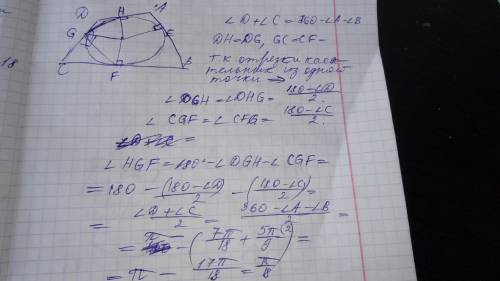 18
D
H
A
G
E
C
F
B
∠D+∠C=360-∠A-∠B
DH=DG, GC=CF-
т.к отрезки каса-
тельных из одной
точки ⇒
∠DGH=∠DHG= (180-∠D)/2.
∠CGF=∠CFG= (180-∠C)/2.
∠HGF=180°-∠DGH-∠CGF=
=180-(180-∠D)/2-(180-∠C)/2=
= (∠D+∠C)/2= (360-∠A-∠B)/2=
=π-(7π/18+5π/9)=
=π-17π/18=π/18